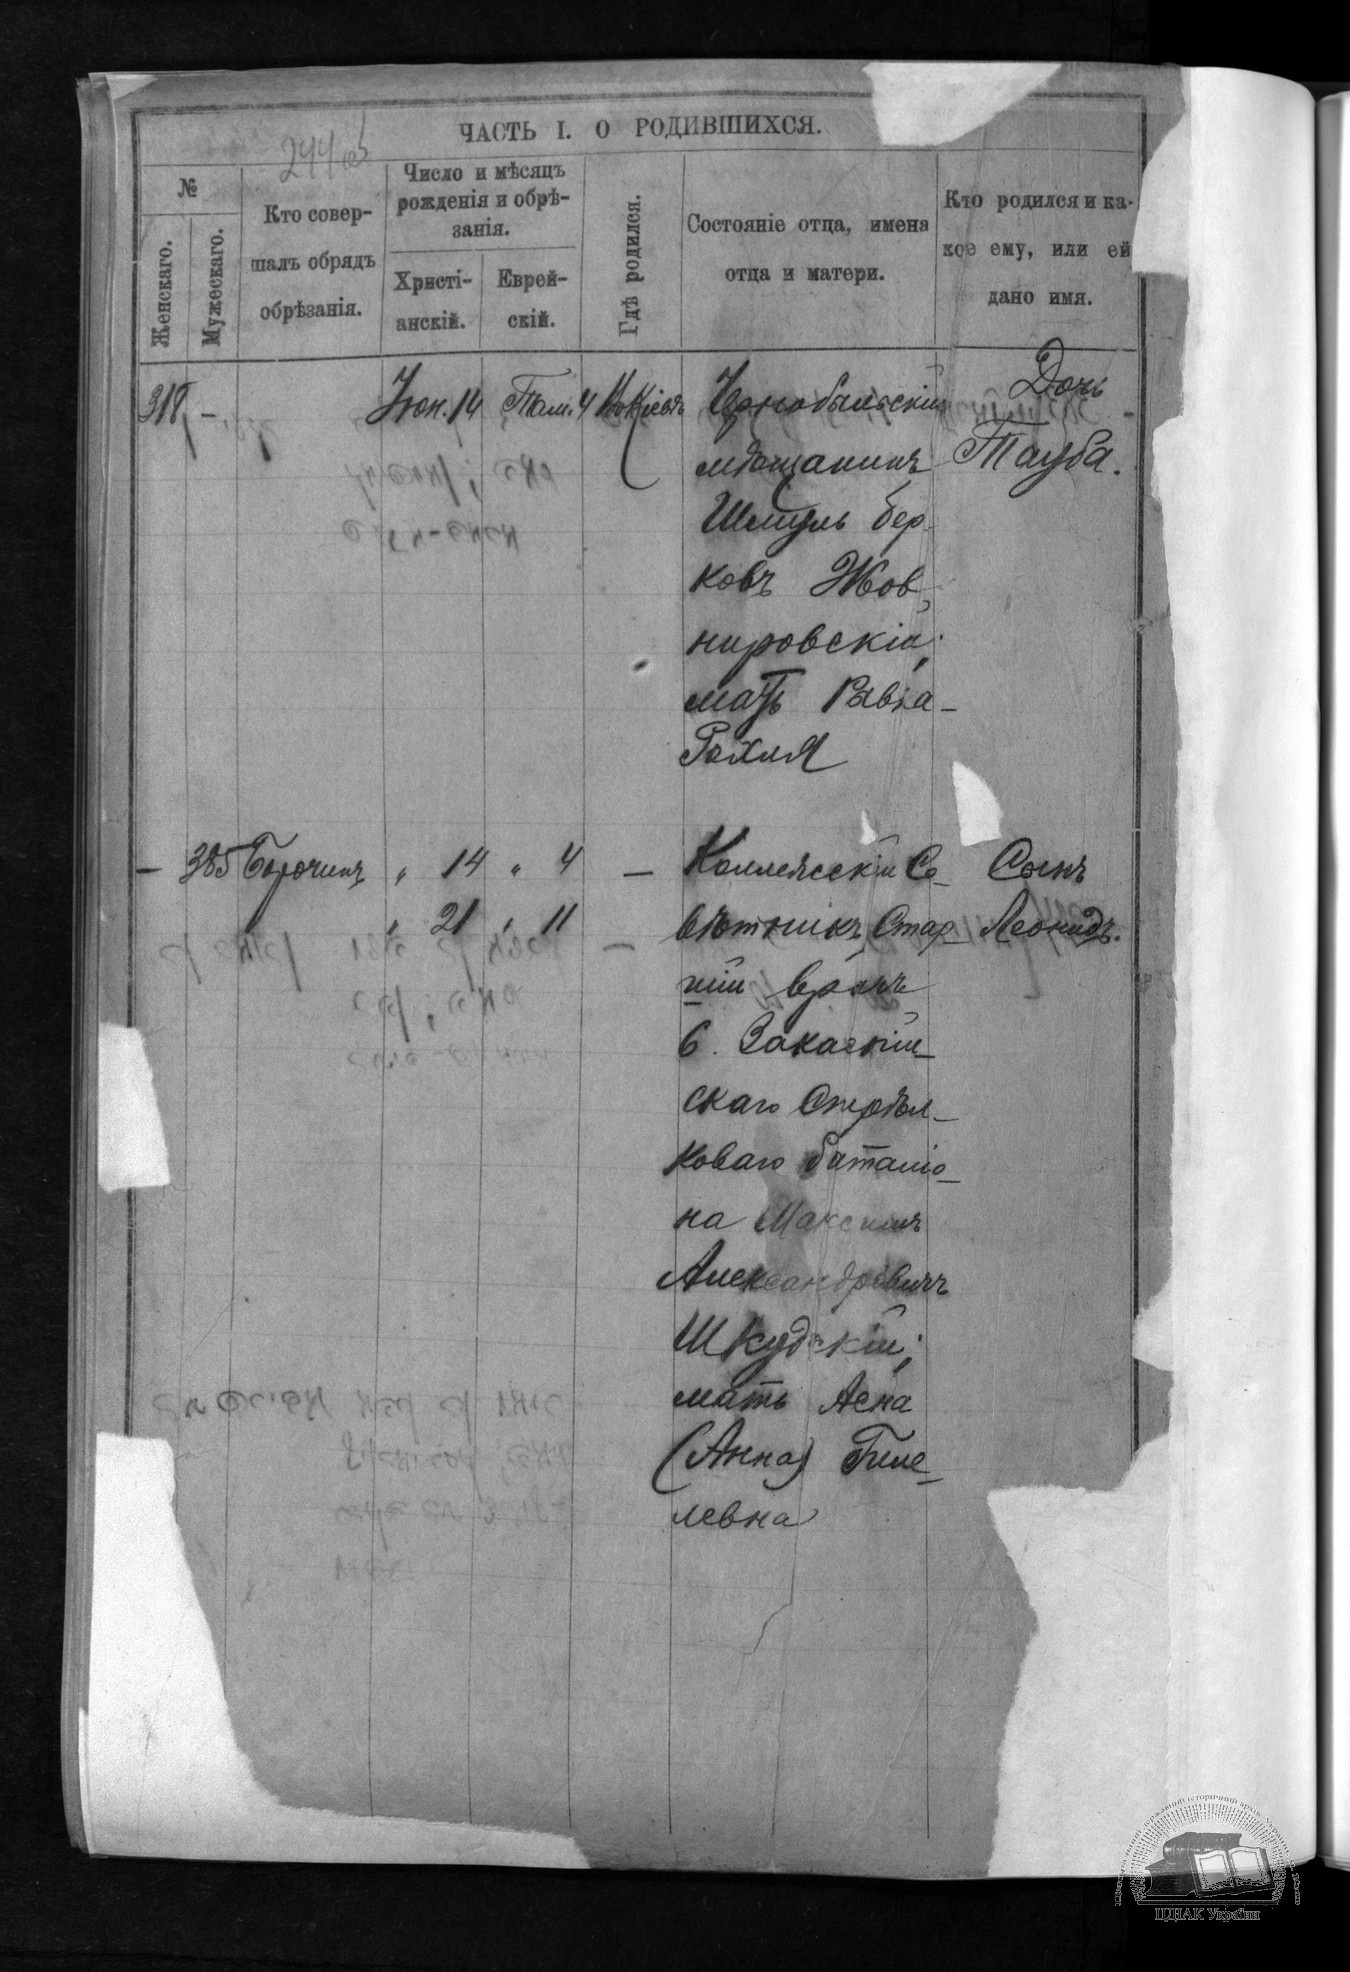 244 об
ЧАСТЬ I. О РОДИВШИХСЯ.
№
Женскаго.
Мужескаго.
Кто совер-
шалъ обрядъ
обрѣзанія.
Число и мѣсяцъ
рожденія и обрѣ-
занія.
Христі-
анскій.
Еврей-
скій.
Гдѣ родился.
Состояніе отца, имена
отца и матери.
Кто родился и ка-
кое ему, или ей
дано имя.
318 - Іюн. 14 Там. 4 Въ Кіевѣ Чернобыльскій Дочь
мѣщанинъ Тауба.
Шмуль Бер-
ковъ Жов-
нировскій;
мать Ривка-
Рохля
- 385 Борочинъ " 14 " 4 - Коллежскій Со- Сынъ
" 21 " 11 - вѣтникъ, Стар- Леонидъ.
шій врачъ
6. Закаспій-
скаго Стрѣл-
коваго баталіо-
на Максимъ
Александровичъ
Шкудскій;
мать Асна
(Анна) Гиле-
левна
ЦДІАК України